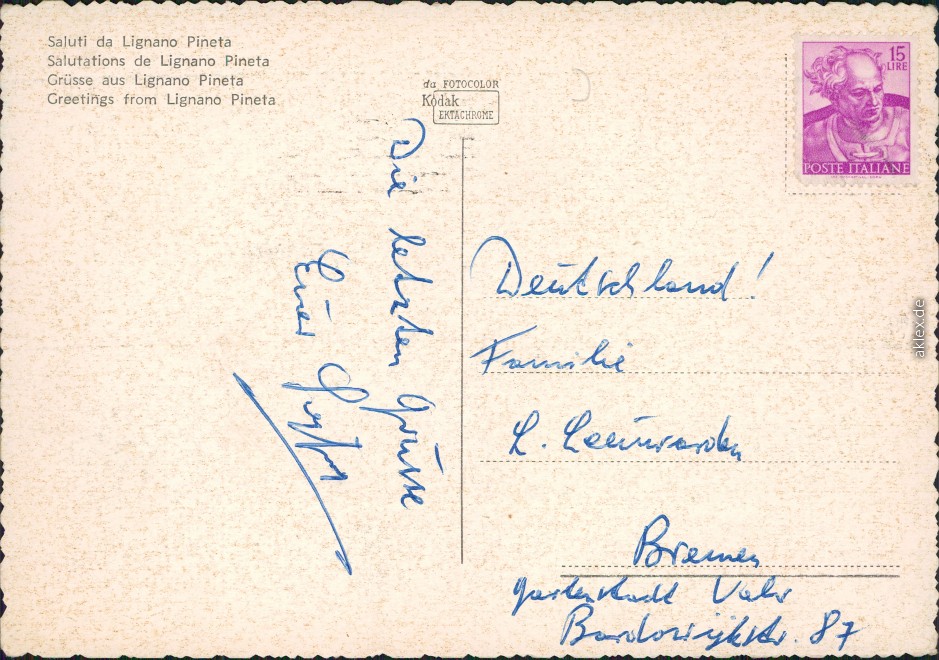 Saluti da Lignano Pineta
Salutations de Lignano Pineta
Grüsse aus Lignano Pineta
Greetings from Lignano Pineta
da FOTOCOLOR
Kodak
EKTACHROME
15
LIRE
POSTE ITALIANE
Die letzten Grüsse
Euer
Deutschland!
Familie
L. Leeuwarden
Bremen
Gartenstadt Vahr
Bardowickstr. 87
aklex.de